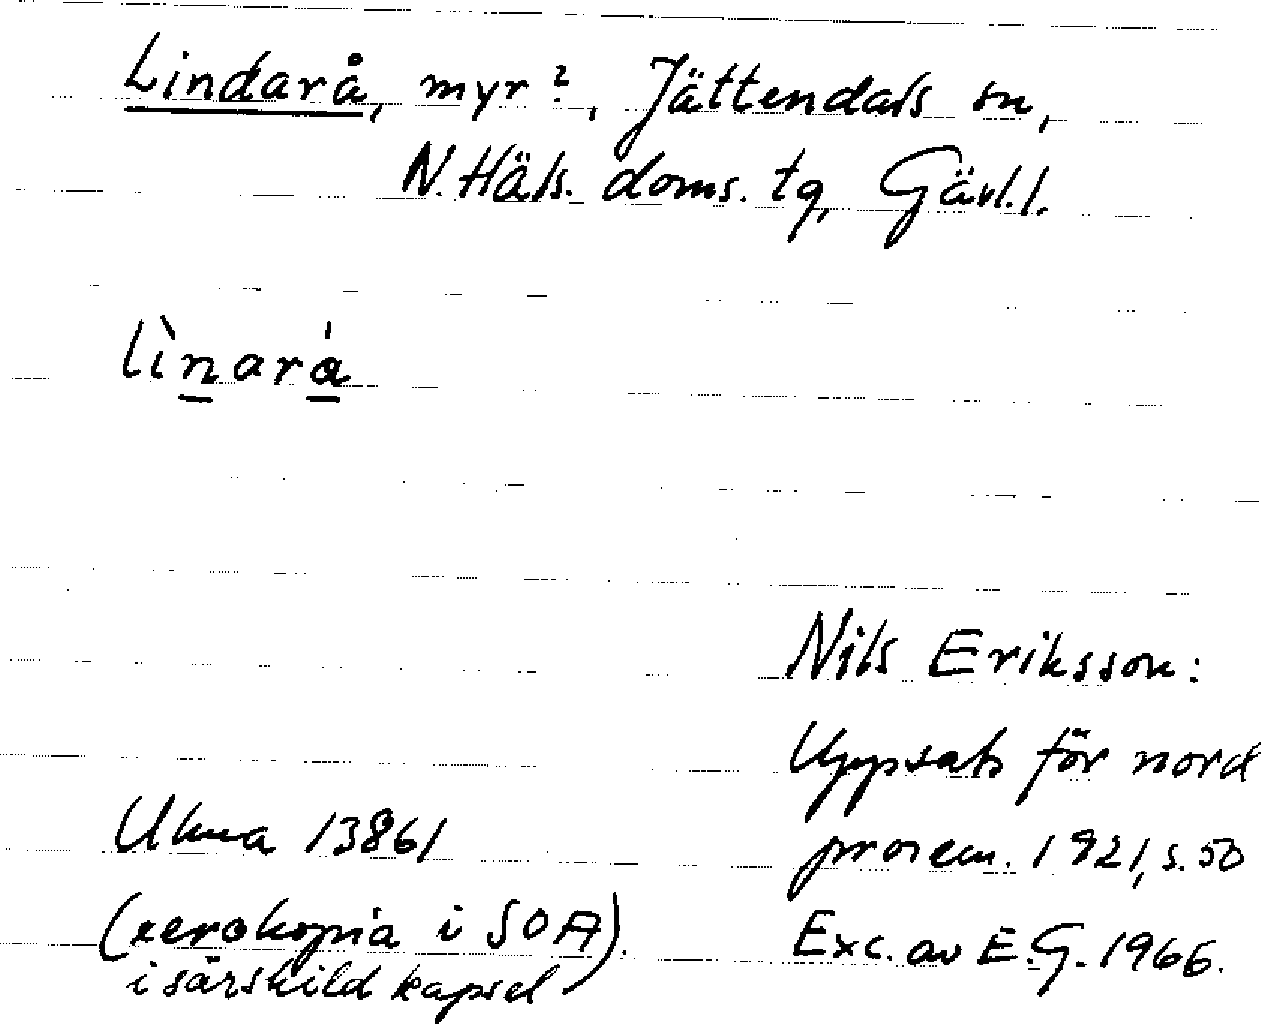 Lindarå, myr?, Jättendals sn,
N. Häls. doms. tg, Gävl. l.
lìnarå̀
Nils Eriksson:
Uppsats för nord
prosem. 1921, s. 50
Ulma 13861
(xerokopia i SOA).
i särskild kapsel
Exc. av E.G. 1966.